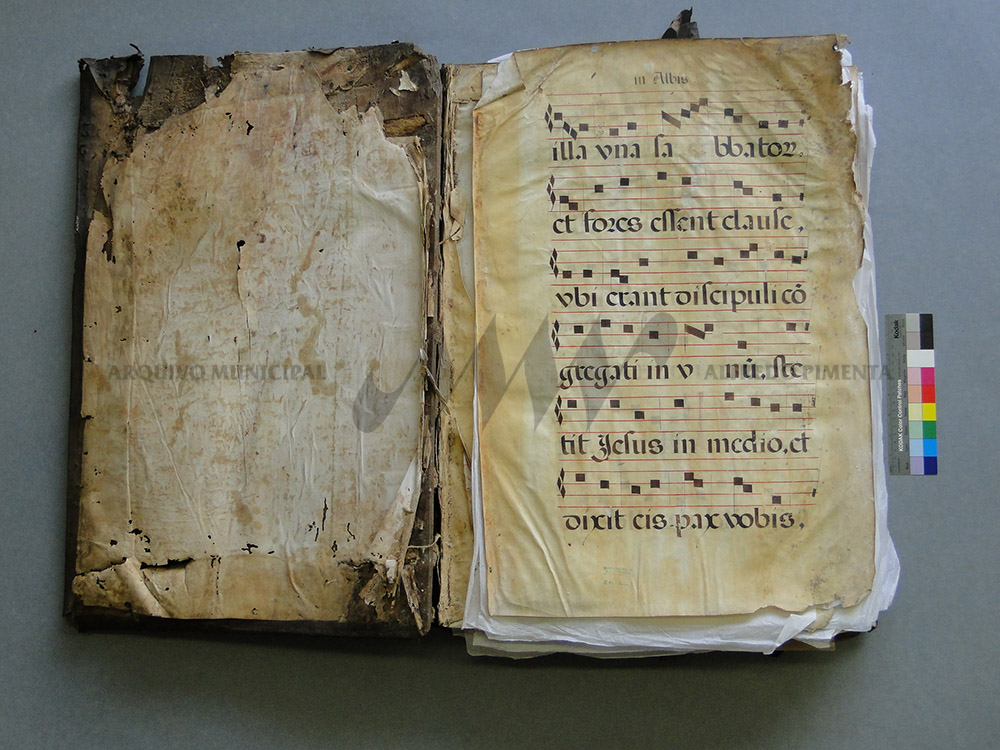 in Albis
illa vna sa bbator.
et fores essent clause,
vbi erant discipuli cõ
gregati in v nũ, ste
tit Jesus in medio, et
dixit eis. pax vobis,
ARQUIVO MUNICIPAL ALFREDO PIMENTA
Kodak
KODAK Color Control Patches